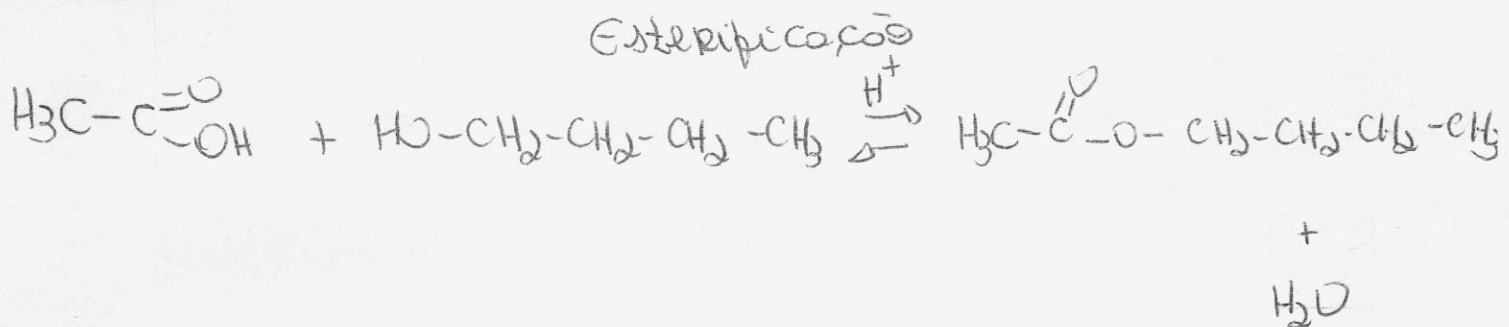 Esterificação
H3C-C=O-OH + HO-CH2-CH2-CH2-CH3 H+ ⇌ H3C-C=O-O-CH2-CH2-CH2-CH3
+
H2O